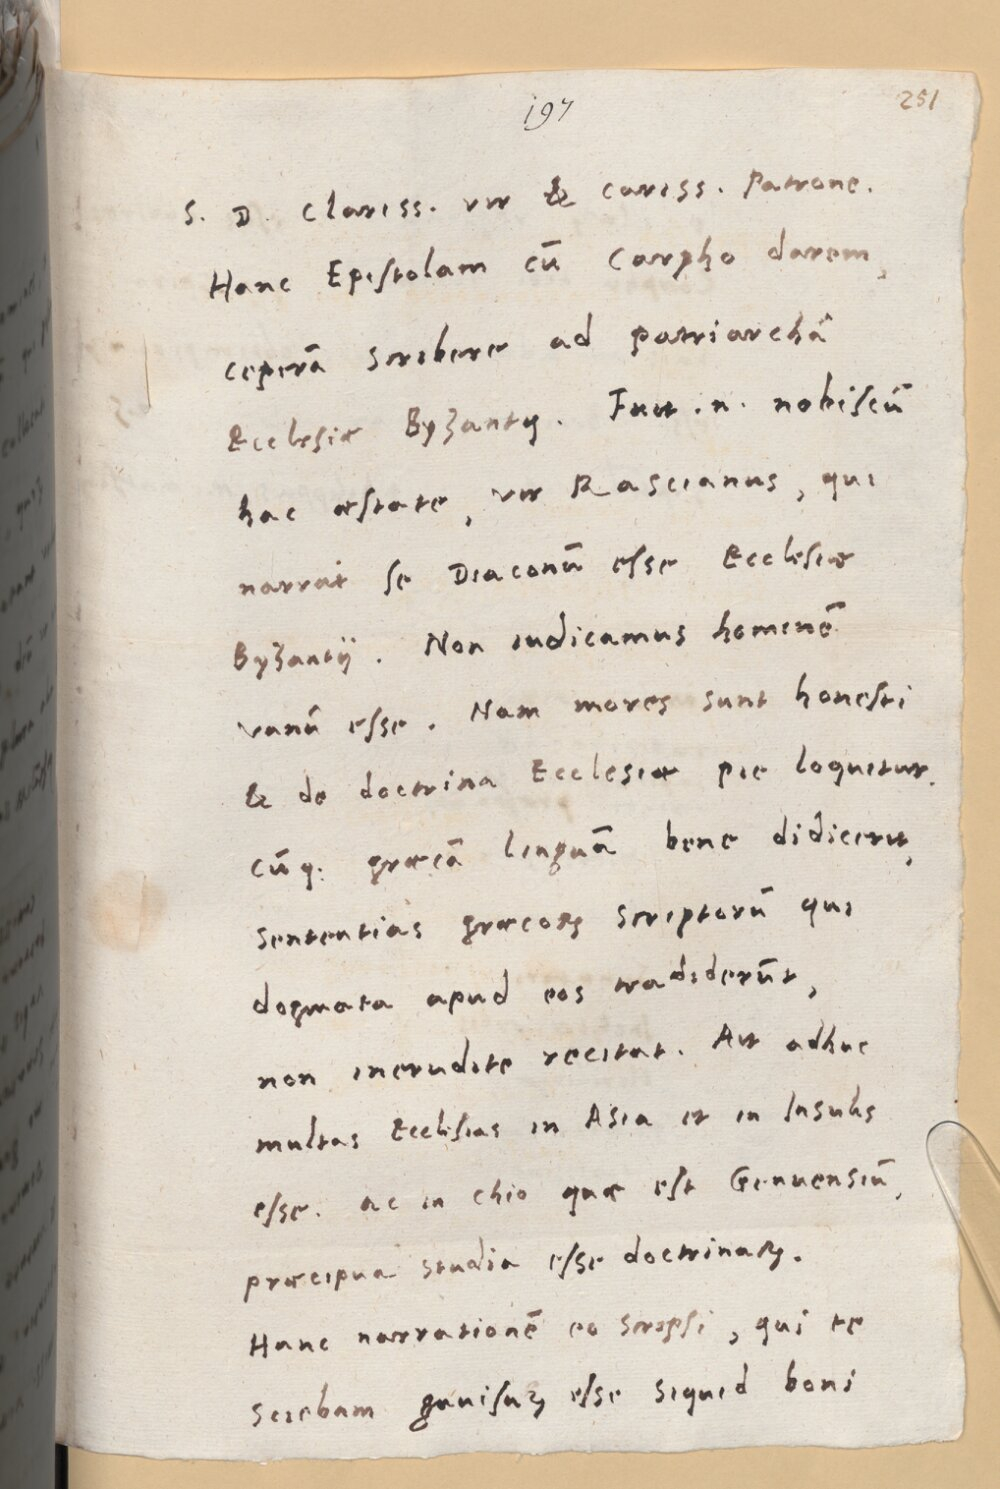 197
251
S. D. Clariss. vir & cariss. Patrone.
Hanc Epistolam cū Carpho darem,
ceperā scribere ad patriarchā
Ecclesiæ Byzantij. Fuit .n. nobiscū
hac æstate, vir Rascianus, qui
narrat se Diaconū esse Ecclesiæ
Byzantij. Non iudicamus hominē
vanū esse. Nam mores sunt honesti
& de doctrina Ecclesiæ pie loquitur.
cūq: græcā linguā bene didicerit,
sententias græcoꝝ scriptorū qui
dogmata apud eos tradiderūt,
non inerudite recitat. Ait adhuc
multas Ecclesias in Asia et in Insulis
esse. ac in Chio quæ est Genuensiū,
præcipua studia esse doctrinaꝝ.
Hanc narrationē eo scripsi, qui te
sciebam gauisuꝝ esse siquid boni